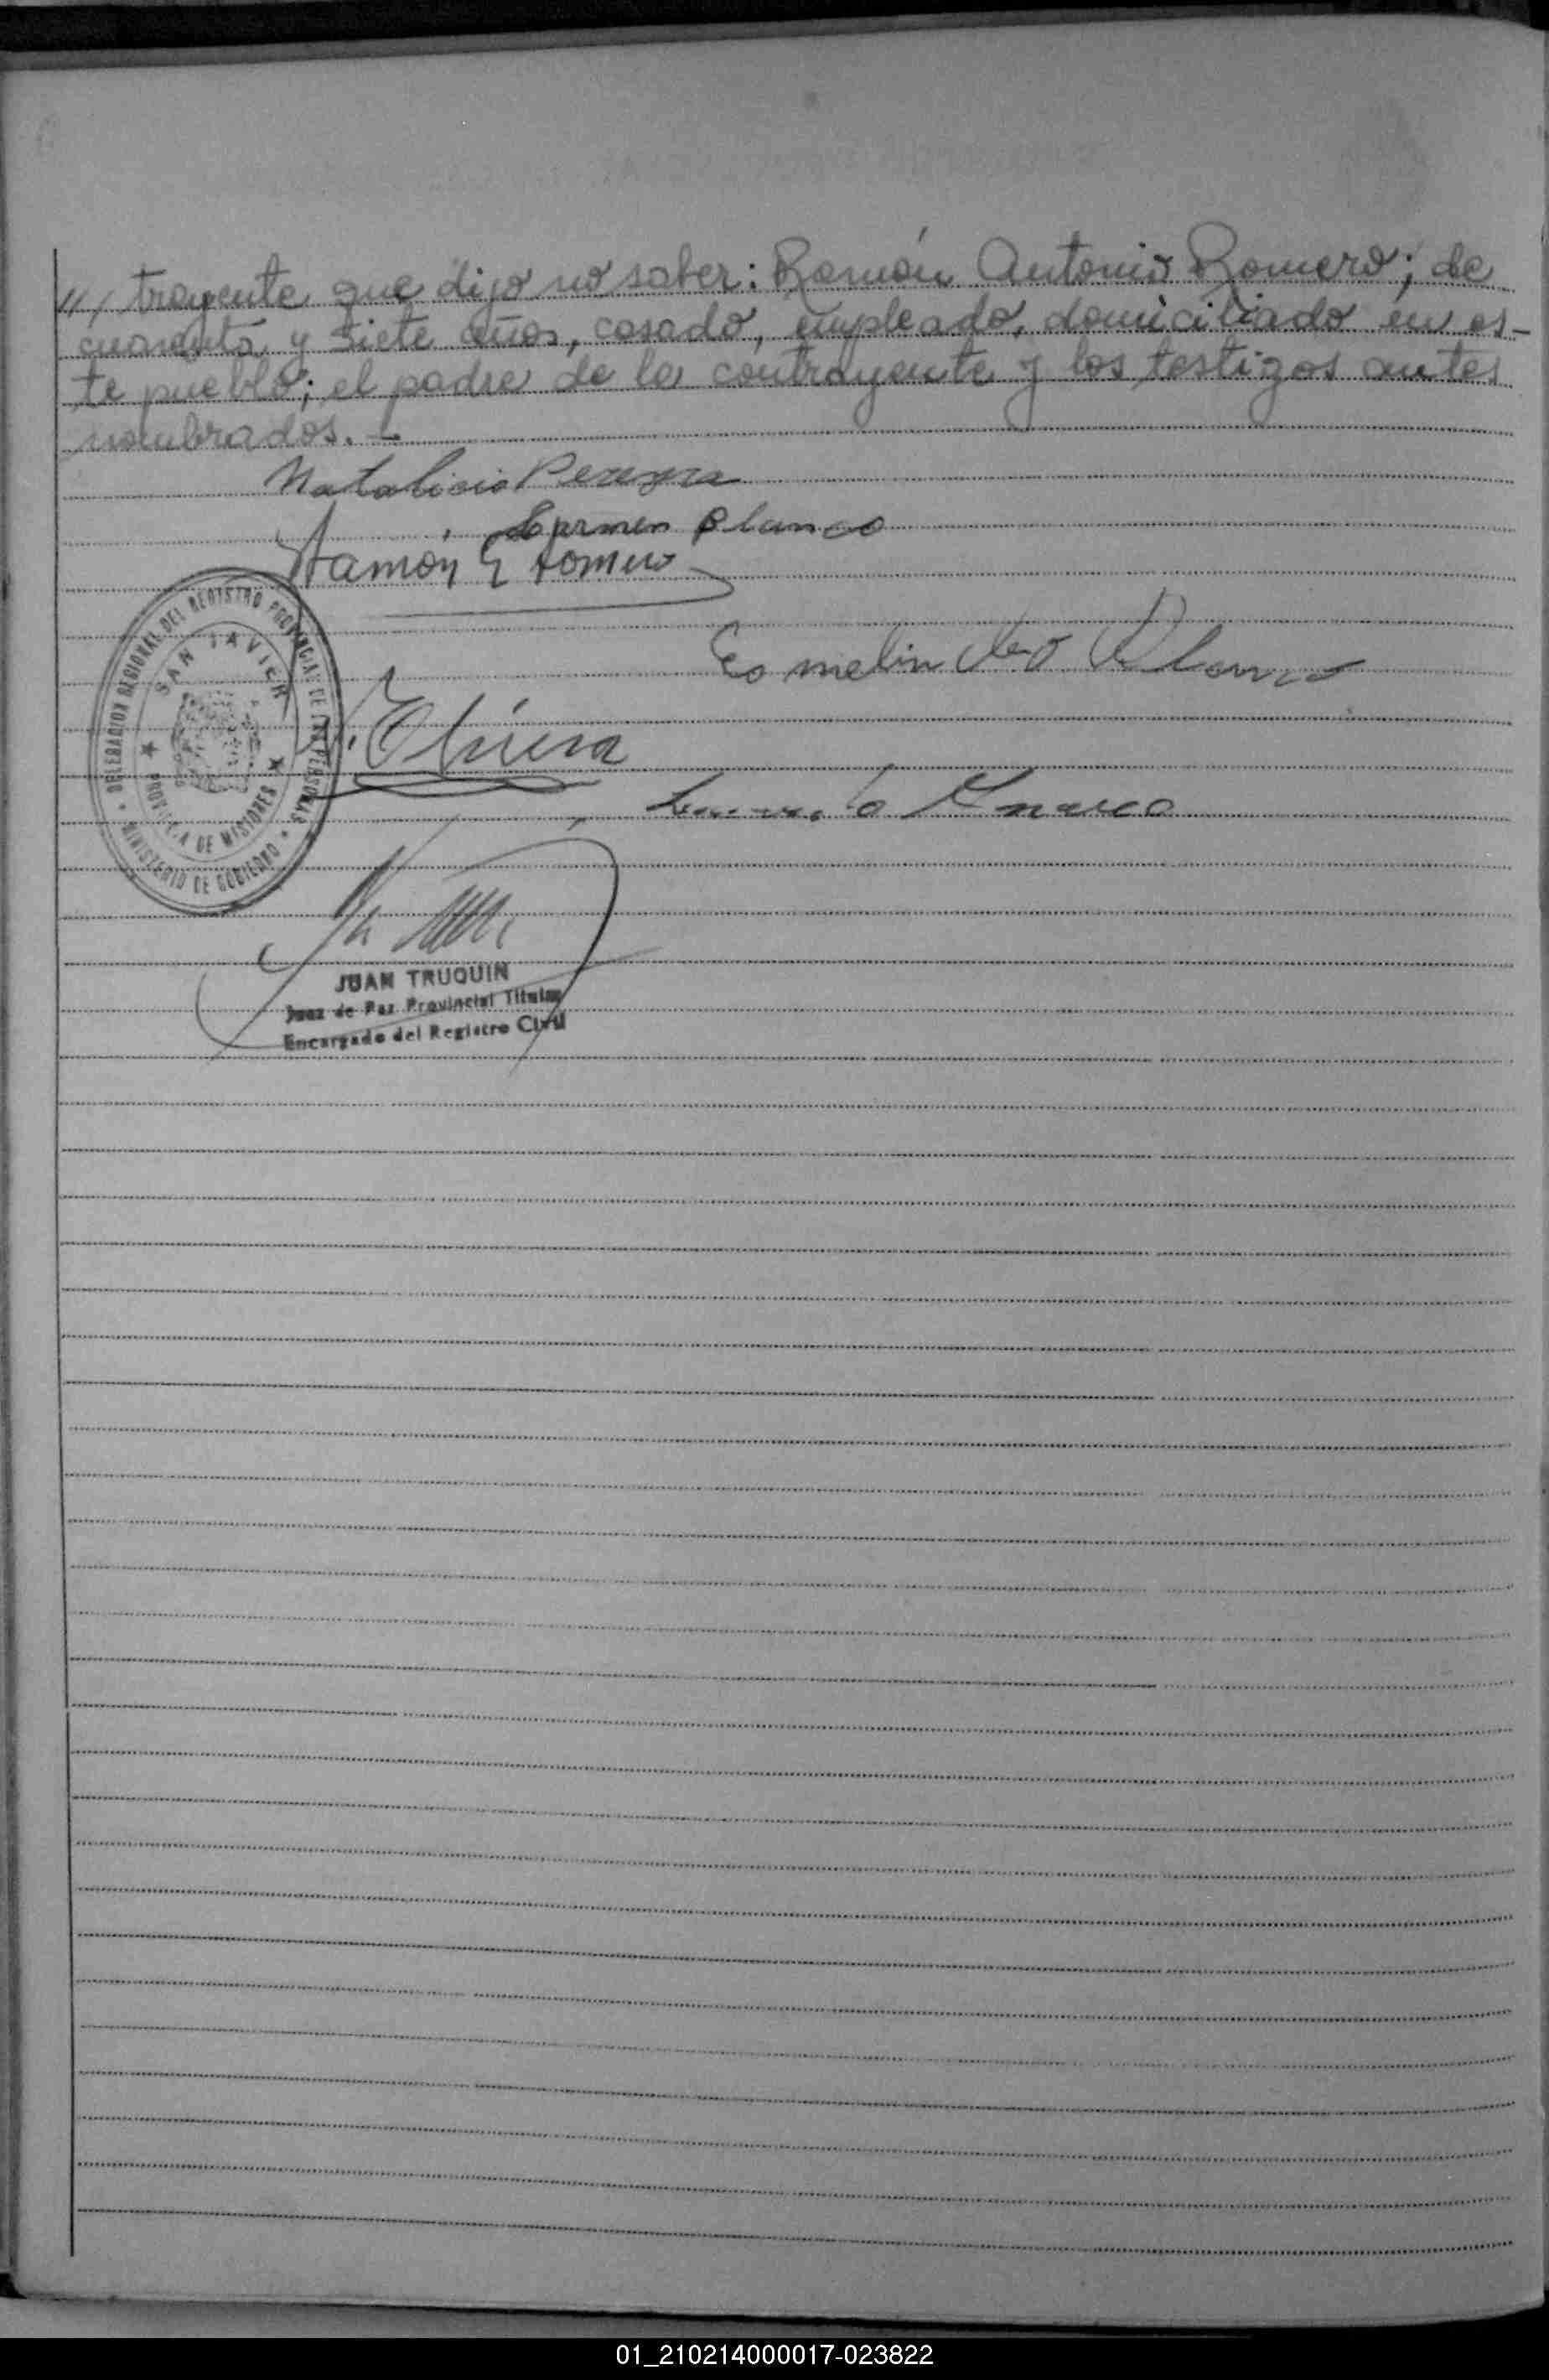 11, trayente que dijo no saber: Ramón Antonio Romero; de
cuarenta y siete años, casado, empleado, domiciliado en es-
te pueblo; el padre de la contrayente y los testigos antes
nombrados. -
Natalicio Pereyra
Carmen Blanco
Ramón A Romero
Esmelindro Blanco
DELEGACION REGIONAL DEL REGISTRO PROVINCIAL DE LAS PERSONAS
SAN JAVIER
PROVINCIA DE MISIONES
MINISTERIO DE GOBIERNO
JUAN TRUQUIN
Juez de Paz Provincial Titular
Encargado del Registro Civil
01_210214000017-023822